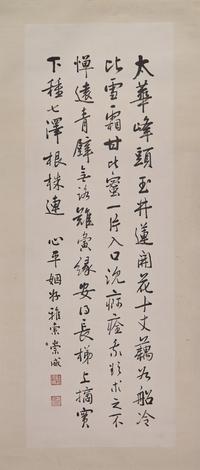 太華峰頭玉井蓮開花十丈藕如船冷
比雪霜甘比蜜一片入口沈痾痊我欲求之不
憚遠青壁無路難夤緣安得長梯上摘實
下種七澤根株連
心平姻好雅索